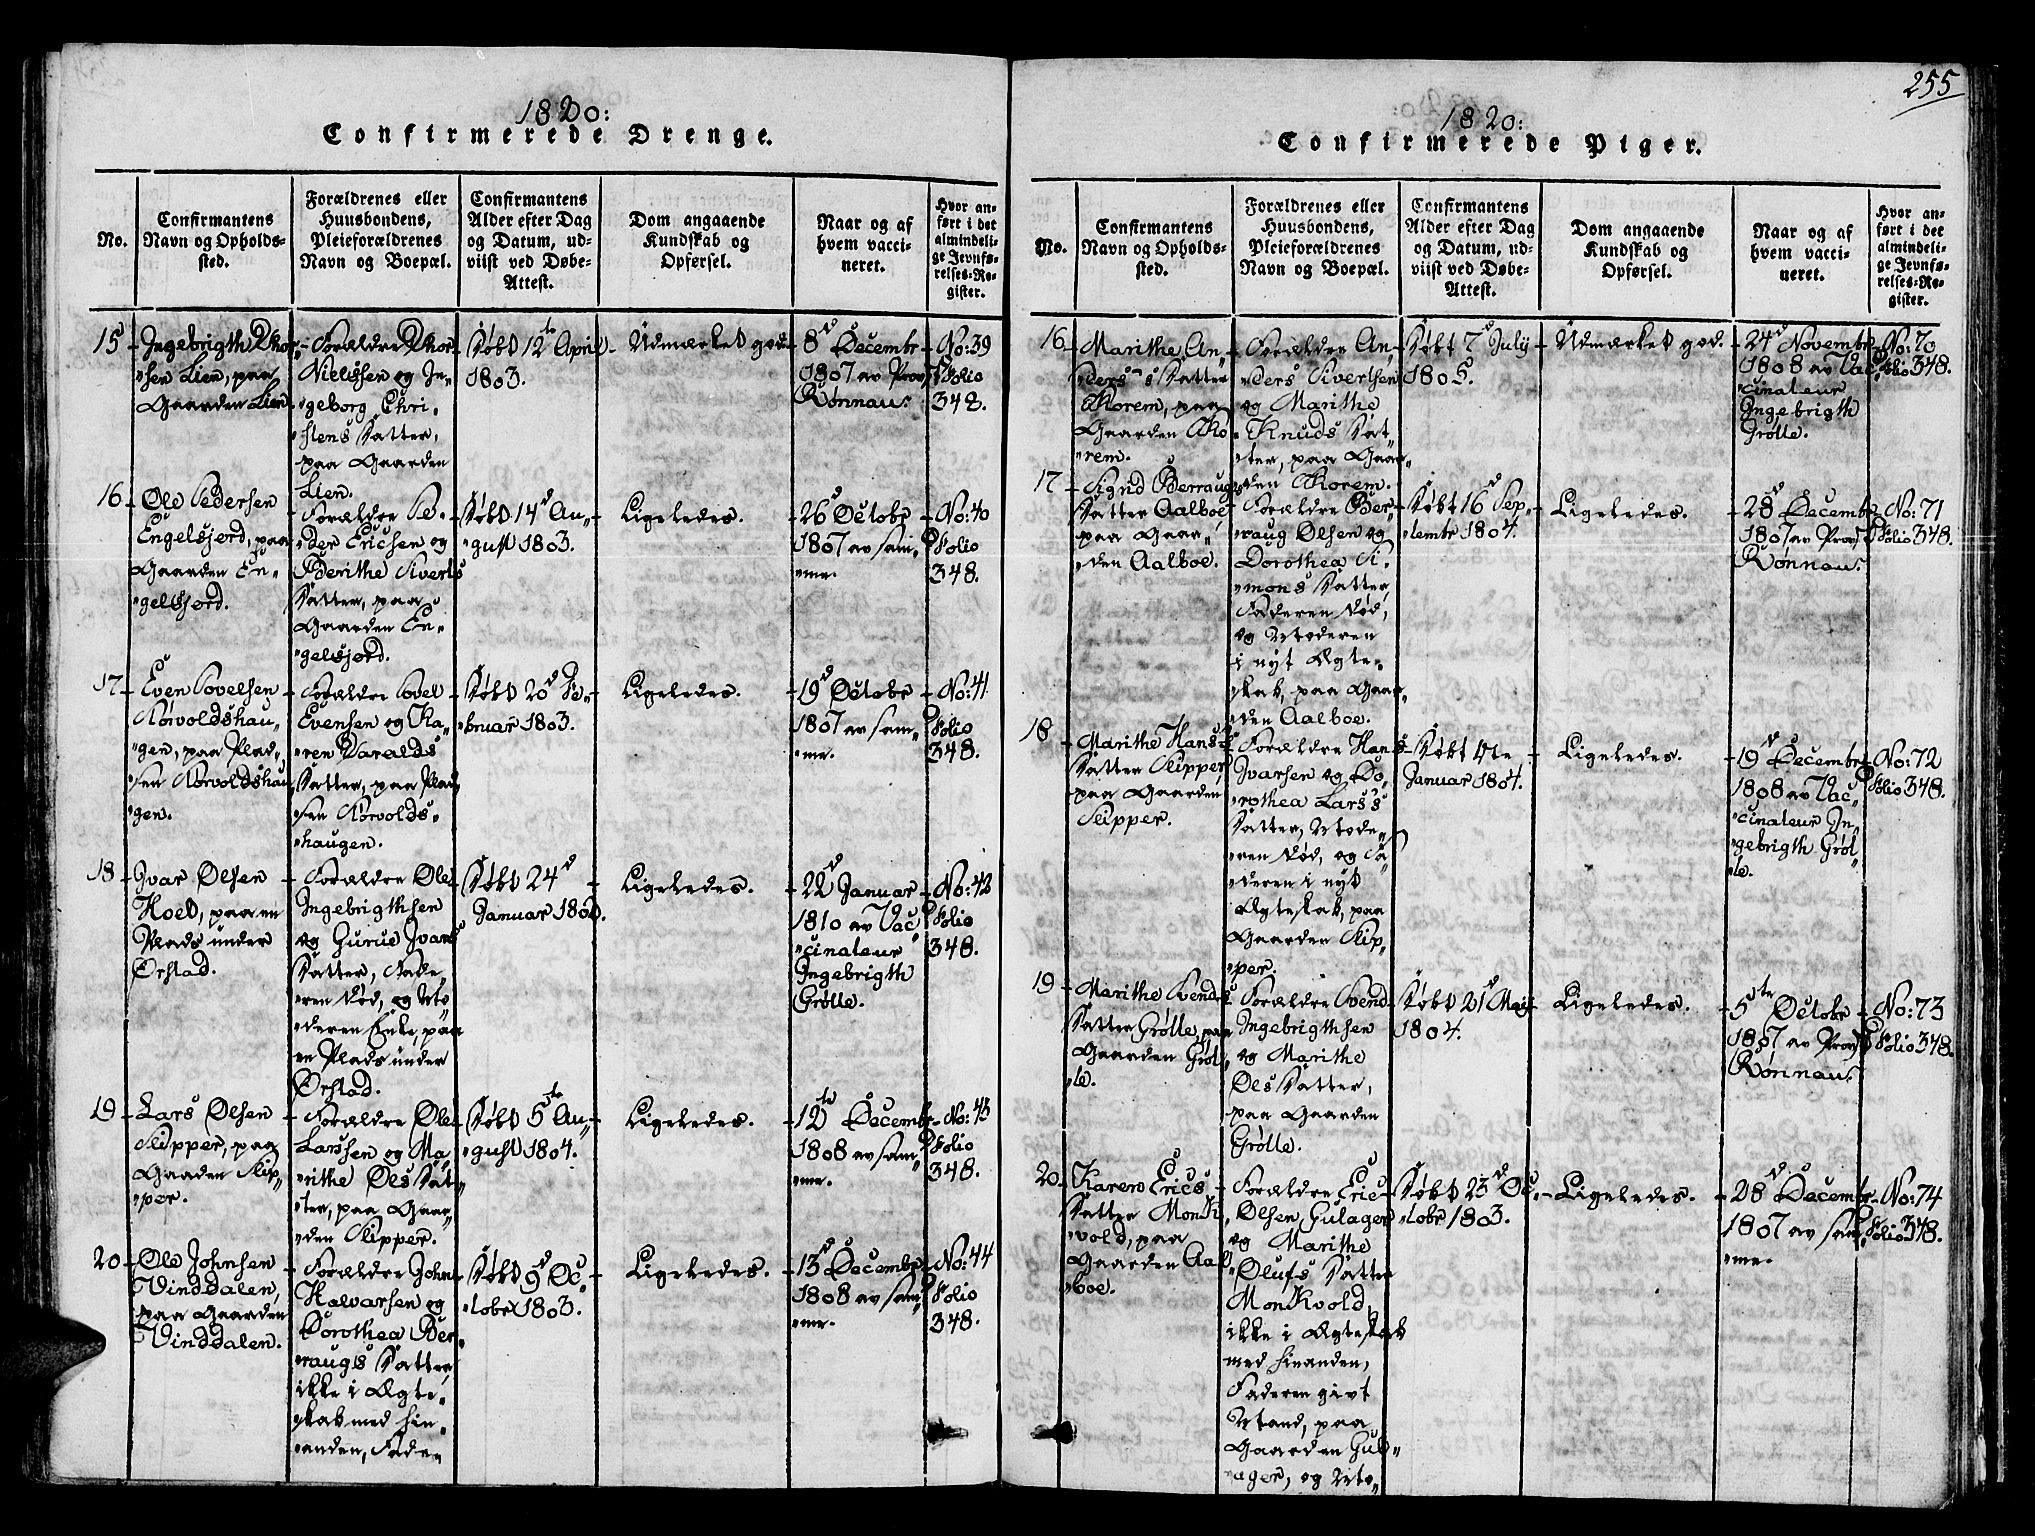 1820:
Confirmerede Drenge.
No.
Confirmantens
Navn og Opholds-
sted.
Forældrenes eller
Huusbondens,
Pleieforældrenes
Navn og Boepæl.
Confirmantens
Alder efter Dag
og Datum, ud-
viist ved Døbe-
Attest.
Dom angaaende
Kundskab og
Opførsel.
Naar og af
hvem vacci-
neret.
Hvor an-
ført i det
almindeli-
ge Jevnfø-
relses-Re-
gister.
15
Ingebrigth Thor-
sen Lien, paa
Gaarden Lien.
Forældre Thor
Nielssen og In-
geborg Chri-
stens Datter,
paa Gaarden
Lien.
Døbt 12te April
1803.
Udmærket god.
8d Decembr
1807 av Provst
Rønnau.
No: 39
Folio
348.
16
Ole Pedersen
Engelsjord, paa
Gaarden En-
gelsjord.
Forældre Pe-
der Ericsen og
Berithe Siverts
Datter, paa
Gaarden En-
gelsjord.
Døbt 14d Au-
gust 1803.
Ligeledes.
26d Octobr
1807 av sam-
me.
No: 40
Folio
348.
17
Even Povelsen
Nørvoldshau-
gen, paa Plad-
sen Nørvoldshau-
gen.
Forældre Povel
Evensen og Ka-
ren Haralds
Datter, paa Plad-
sen Nørvolds-
haugen.
Døbt 20d Fe-
bruar 1803.
Ligeledes.
19d Octobr
1807 av sam-
me.
No: 41
Folio
348.
18
Ivar Olsen
Hoel, paa en
Plads under
Ørstad.
Forældre Ole
Ingebrigthsen
og Gurue Ivars
Datter, Fade-
ren død, og Mo-
deren Enke, paa
en Plads under
Ørstad.
Døbt 24d
Januar
Ligeledes.
22d Januar
1810 av Vac-
cinateur
Ingebrigth
Grølle.
No: 42
Folio
348.
19
Lars Olsen
Slipper, paa
Gaaden Slip-
per.
Forældre Ole
Larssen og Ma-
rithe Ols Dat-
ter, paa Gaar-
den Slipper.
Døbt 5te Au-
gust 1804.
Ligeledes.
12te Decembr
1808 av sam-
me.
No: 43
Folio
348.
20
Ole Johnsen
Vinddalen,
paa Gaarden
Vinddalen.
Forældre John
Halvarsen og
Dorothea Ber-
raugs Datter,
ikke i Ægte-
skab med hin-
anden, Fade-
Døbt 9d Oc-
tobr 1803.
Ligeledes.
13d Decembr
1808 av sam-
me.
No: 44
Folio
348.
255
1820:
Confirmerede Piger.
No.
Confirmantens
Navn og Opholds-
sted.
Forældrenes eller
Huusbondens,
Pleieforældrenes
Navn og Boepæl.
Confirmantens
Alder efter Dag
og Datum, ud-
viist ved Døbe-
Attest.
Dom angaaende
Kundskab og
Opførsel.
Naar og af
hvem vacci-
neret.
Hvor an-
ført i det
almindeli-
ge Jevnfø-
relses-Re-
gister.
16
Marithe An-
ders Datter
Thorem, paa
Gaarden Tho-
rem.
Forældre An-
ders Sivertsen
og Marithe
Knuds Dat-
ter, paa Gaar-
den Thorem.
Døbt 7d July
1805.
Udmærket god.
24d Novembr
1808 av Vac-
cinateur
Ingebrigth
Grølle.
No: 70
Folio 348.
17
Sigrid Berraugs
Datter Aalboe
paa Gaar-
den Aalboe.
Forældre Ber-
raug Olsen og
Dorothea Si-
mons Datter,
Faderen død,
og Moderen
i nyt Ægte-
skab, paa Gaar-
den Aalboe.
Døbt 16d Sep-
tembr 1804.
Ligeledes.
28d Decembr
1807 av Provst
Rønnau.
No: 71
Folio 348.
18
Marithe Hans
Datter Slipper,
paa Gaarden
Slipper.
Forældre Hans
Ivarsen og Do-
rothea Lars's
Datter, Mode-
ren død, og Fa-
deren i nyt
Ægteskab, paa
Gaarden Slip-
per.
Døbt 1te
Januar 1804.
Ligeledes.
19d Decembr
1808 av Vac-
cinateur In-
gebrigth Grøl-
le.
No: 72
Folio 348.
19
Marithe Svends
Datter Grølle, paa
Gaarden Grøl-
le.
Forældre Svend
Ingebrigthsen
og Marithe
Ols Datter,
paa Gaarden
Grølle.
Døbt 21d May
1804.
Ligeledes.
5te Octobr
1807 av Provst
Rønnau.
No: 73
Folio 348.
20
Karen Erics
Datter Monk-
vold, paa
Gaarden Aal-
boe.
Forældre Eric
Olsen Gulager
og Marithe
Olufs Datter
Monkvold,
ikke i Ægteskab
med hinanden,
Faderen givt
Mand, paa
Gaarden Gul-
ager, og Mo-
Døbt 23d Oc-
tobr 1803.
Ligeledes.
28d Decembr
1807 av sam-
me.
No: 74
Folio 348.